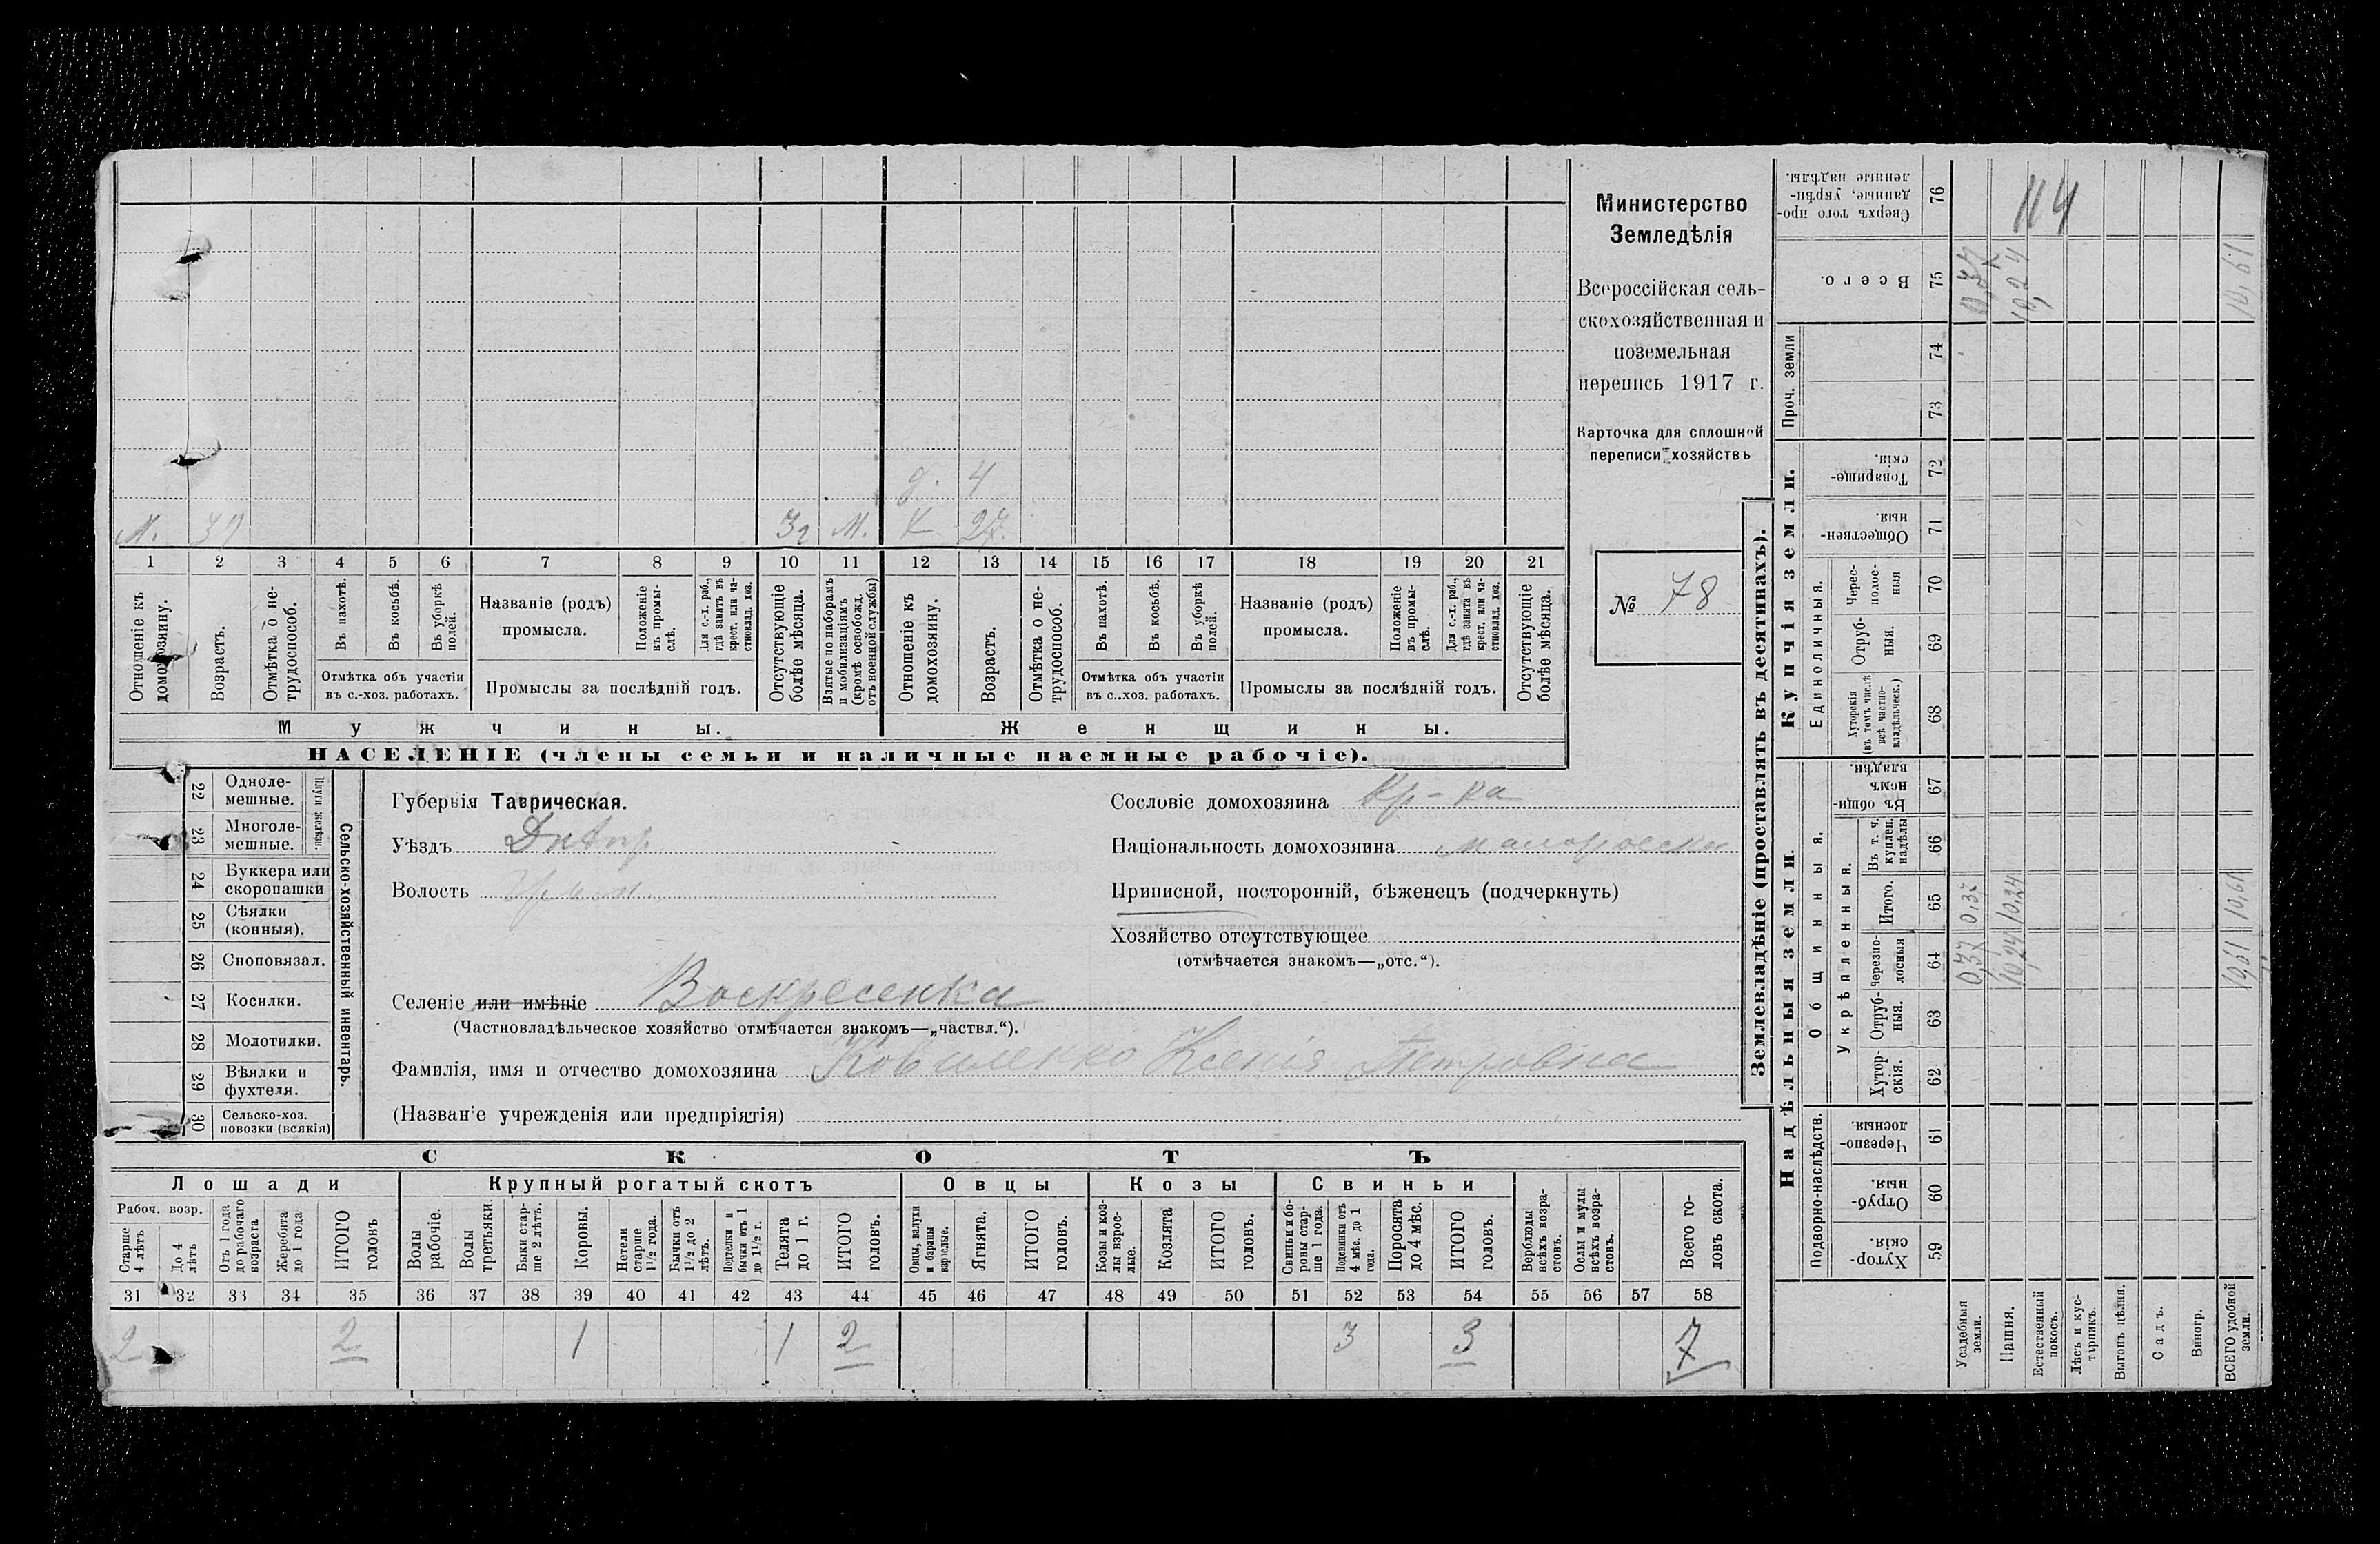 д. 4
М. 32 32 М. К 27.
1 2 3 4 5 6 7 8 9 10 11 12 13 14 15 16 17 18 19 20 21
Отношеніе къ домохозяину.
Возрастъ.
Отмѣтка о не-трудоспособ.
Въ пахотѣ.
Въ косьбѣ.
Въ уборкѣ полей.
Отмѣтка объ участіи
въ с.-хоз. работахъ.
Названіе (родъ)
промысла.
Положеніе въ промы-слѣ.
Для с.-х. раб., гдѣ занятъ въ крест. или ча-стновлад. хоз.
Промыслы за послѣдній годъ.
Отсутствующіе болѣе мѣсяца.
Взятые по наборамъ и мобилизаціямъ (кромѣ освобожд. отъ военной службы)
Отношеніе къ домохозяину.
Возрастъ.
Отмѣтка о не-трудоспособ.
Въ пахотѣ.
Въ косьбѣ.
Въ уборкѣ полей.
Отмѣтка объ участіи
въ с..хоз. работахъ.
Названіе (родъ)
промысла.
Положеніе въ промы-слѣ.
Для с.-х. раб., гдѣ занята въ крест. или ча-стновлад. хоз.
Промыслы за послѣдній годъ.
Отсутствующіе болѣе мѣсяца.
Мужчины. Женщины.
НАСЕЛЕНІЕ (члены семьи и наличные наемные рабочіе).
Министерство
Земледѣлія
Всероссійская сель-
скохозяйственная и
поземельная
перепись 1917 г.
Карточка для сплошной
переписи хозяйствъ
№ 78
22 Одноле-мешные.
23 Многоле-мешные.
Плуги желѣзн.
24 Буккера или скоропашки
25 Сѣялки (конныя).
26 Сноповязал.
27 Косилки.
28 Молотилки.
29 Вѣялки и фухтеля.
30 Сельско-хоз. повозки (всякія)
Сельско-хозяйственный инвентарь.
Губернія Таврическая.
Уѣздъ Днѣпр
Волость
Сословіе домохозяина Кр-ка
Національность домохозяина малоросска
Приписной, посторонній, бѣженецъ (подчеркнуть)
Хозяйство отсутствующее
(отмѣчается знакомъ—„отс.“).
Селеніе или имѣніе Воскресенка
(Частновладѣльческое хозяйство отмѣчается знакомъ—„частвл.“).
Фамилія, имя и отчество домохозяина Коваленко Ксенія Петровна
(Названіе учрежденія или предпріятія)
СКОТЪ
Лошади Крупный рогатый скотъ Овцы Козы Свиньи
Рабоч. возр.
Старше 4 лѣтъ
До 4 лѣтъ
Отъ 1 года до рабочаго возраста
Жеребята до 1 года
ИТОГО головъ
Волы рабочіе.
Волы третьяки.
Быки стар-ше 2 лѣтъ.
Коровы.
Нетели старше 1½ года.
Бычки отъ 1½ до 2 лѣтъ.
Подтелки и бычки отъ 1 до 1½ г.
Телята до 1 г.
ИТОГО головъ.
Овцы, валухи и бараны взрослые.
Ягнята.
ИТОГО головъ.
Козы и коз-лы взрос-лые.
Козлята
ИТОГО головъ.
Свиньи и бо-ровы стар-ше 1 года.
Подсвинки отъ 4 мѣс. до 1 года.
Поросята до 4 мѣс.
ИТОГО головъ.
Верблюды всѣхъ возра-стовъ.
Ослы и мулы всѣхъ возра-стовъ.
Всего го-ловъ скота.
31 32 33 34 35 36 37 38 39 40 41 42 43 44 45 46 47 48 49 50 51 52 53 54 55 56 57 58
2 2 1 1 2 3 3 7
Землевладѣніе (проставлять въ десятинахъ).
Купчія земли.
Надѣльныя земли.
Сверхъ того про-данные, укрѣп-ленные надѣлы. 76
114
Всего. 75
0,37
10,24
10,61
Проч. земли
74
73
Товарище-скія. 72
Обществен-ныя. 71
Единоличныя.
Черес-полос-ныя 70
Отруб-ныя. 69
Хуторскія (въ томъ числѣ всѣ частно-владѣльческ.) 68
Общинныя.
Въ общи-нномъ владѣн. 67
Укрѣпленныя.
Въ т. ч. куплен. надѣлы 66
Итого. 65
0,37
10,24
10,61
Черезпо-лосныя 64
0,37
10,24
10,61
Отруб-ныя. 63
Хутор-скія. 62
Подворно-наслѣдств.
Черезпо-лосныя. 61
Отруб-ныя. 60
Хутор-скія. 59
Усадебныя земли.
Пашня.
Естественный покосъ.
Лѣсъ и кус-тарникъ.
Выгонъ цѣлин.
Садъ.
Виногр.
ВСЕГО удобной земли.